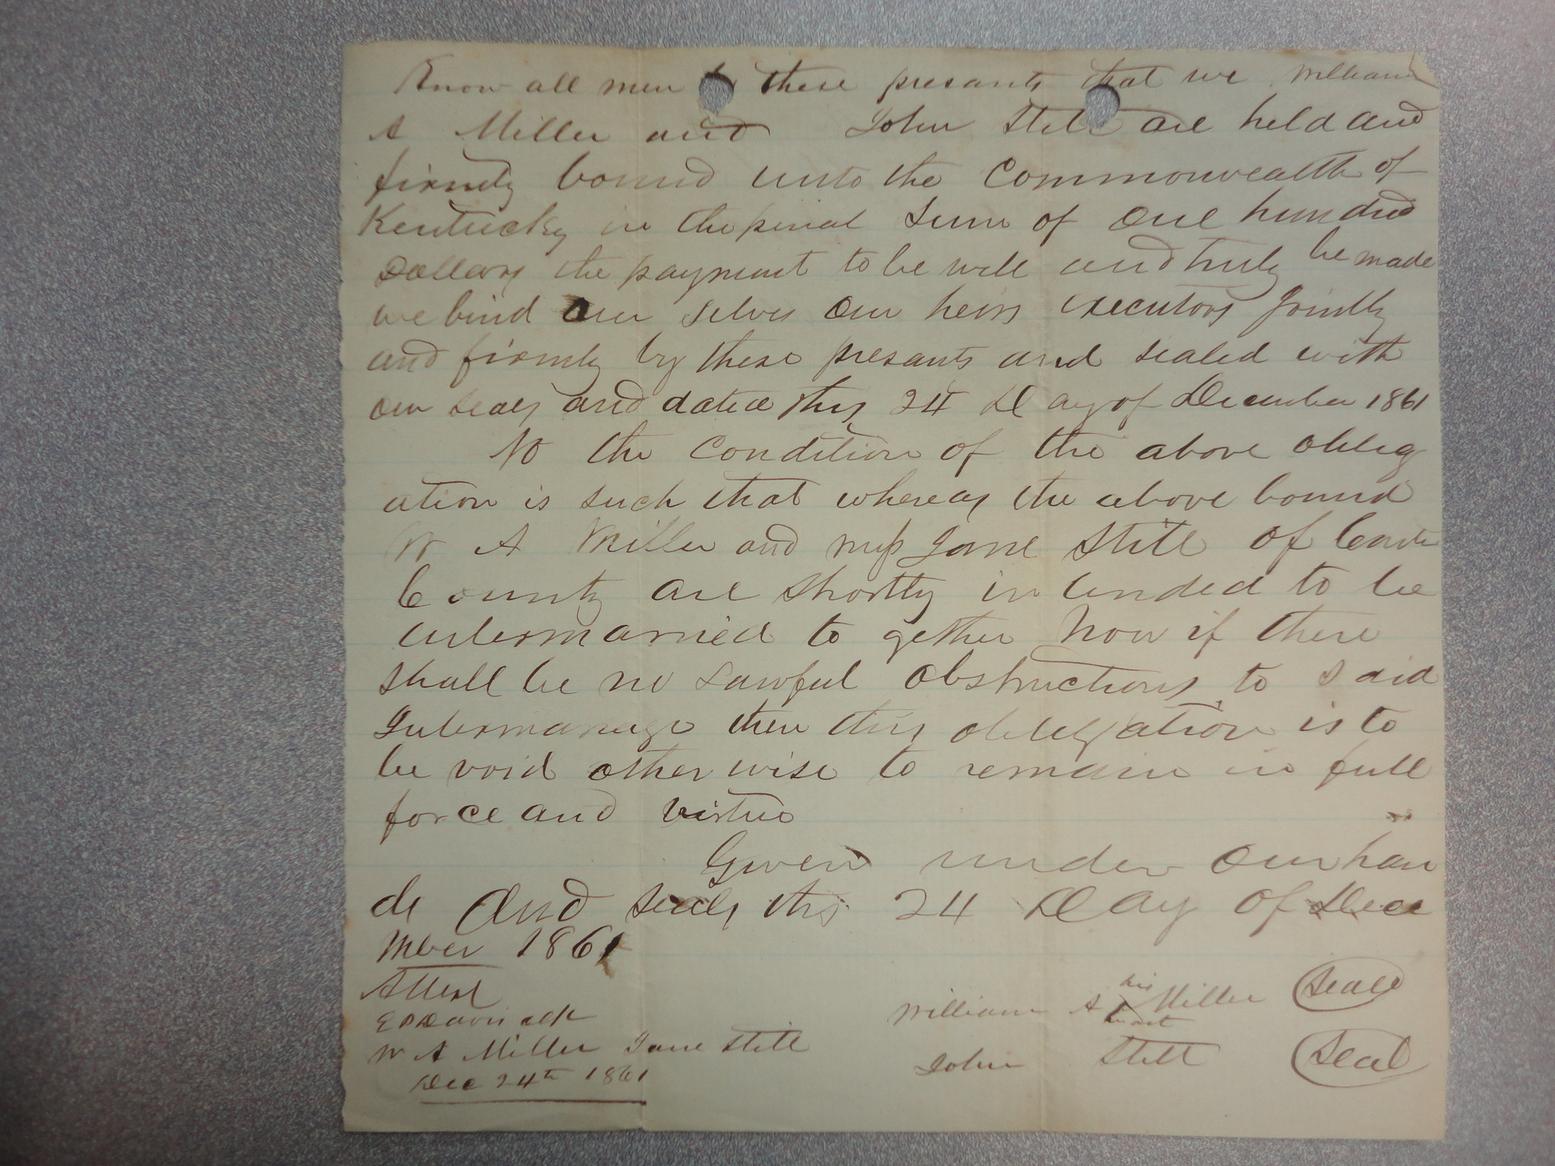 Know all men by these presants that we William
A Miller and John Still are held and
firmly bound unto the Commonwealth of
Kentucky in the penal Sum of one hundred
Dollars the payment to be well and truly be made
we bind our selves our heirs executors Jointly
and firmly by these presants and sealed with
our seals and dated this 24 Day of December 1861
No the Condition of the above oblig
ation is such that whereas the above bound
W A Miller and miss Jane Still of
County are Shortly in tended to be
intermarried to gether Now if there
shall be no Lawful obstructions to said
Intermarrage then this obligation is to
be void other wise to remain in full
force and virtue
Given under our han
ds And seals this 24 Day of Dece
mber 1861
Attest
E P Davis clk
William A his X Miller Seal
mark
W A Miller Jane Still
John Still Seal
Dec 24th 1861